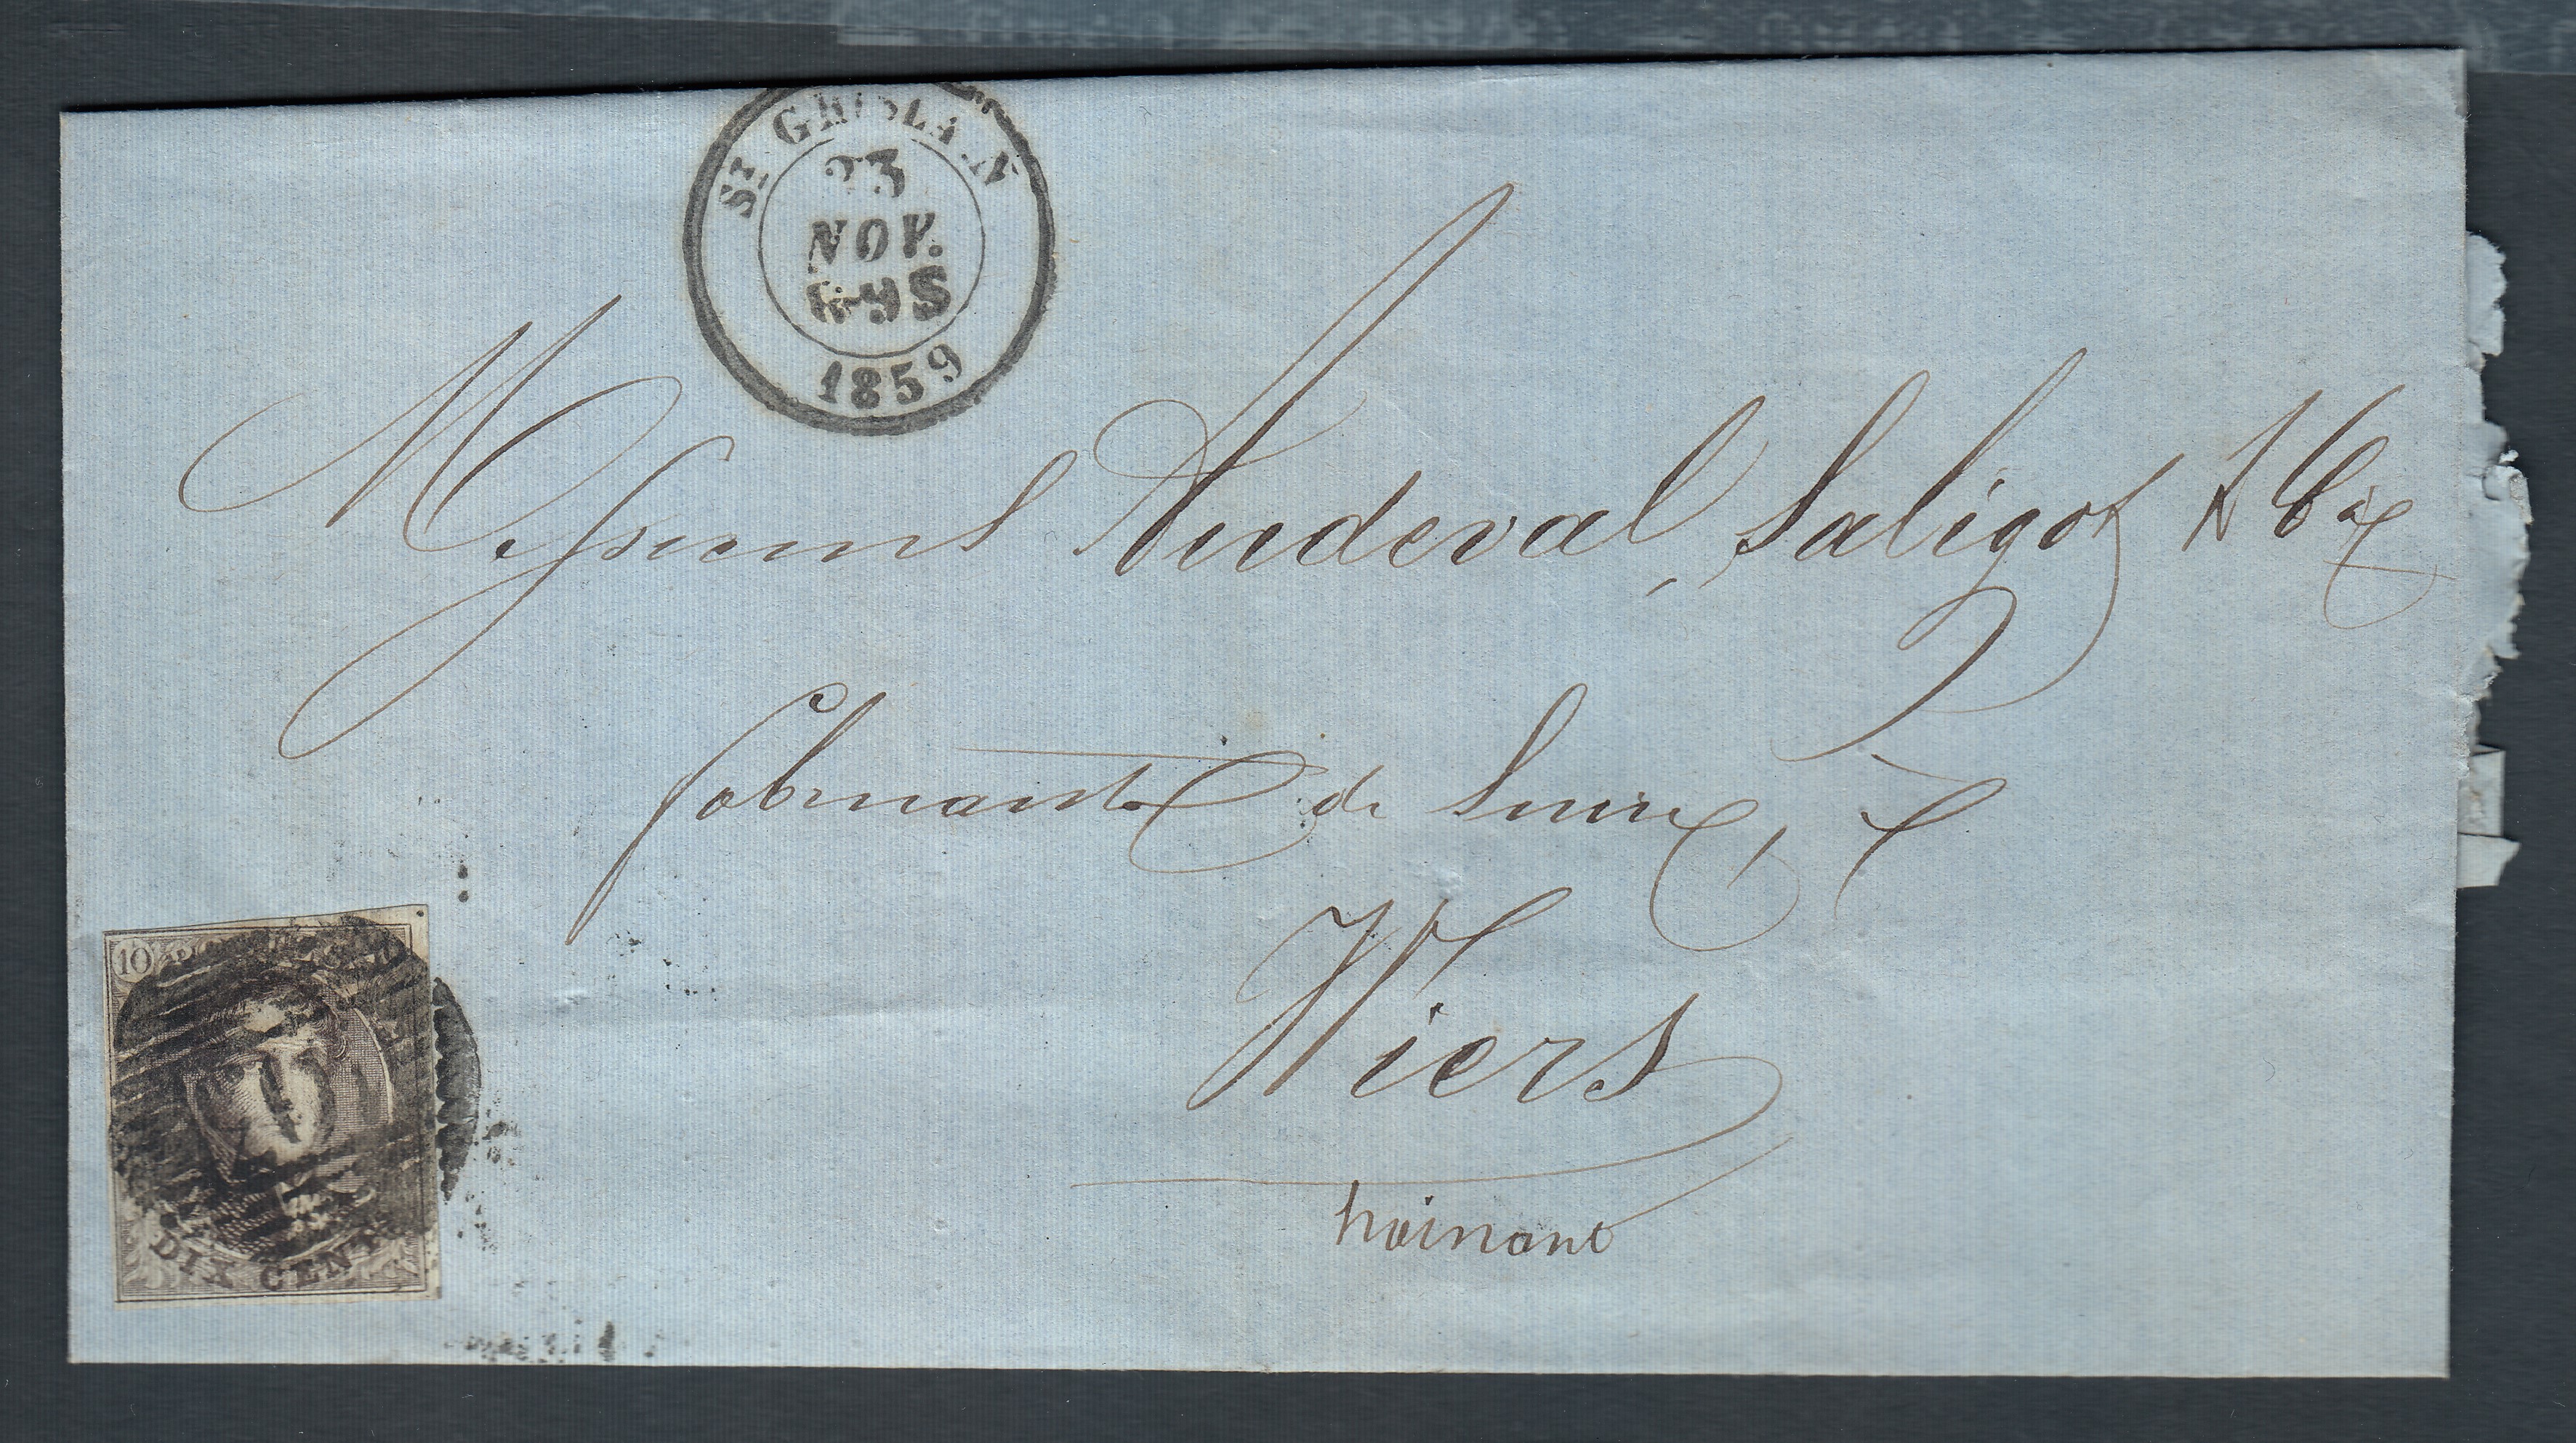 ST GHISLAIN
23
NOV.
9S
1859
Messieurs Dudeval, Saligot & Cie
fabricants de Sucre,
à
Wiers
hainaut
10
DIX CENTS